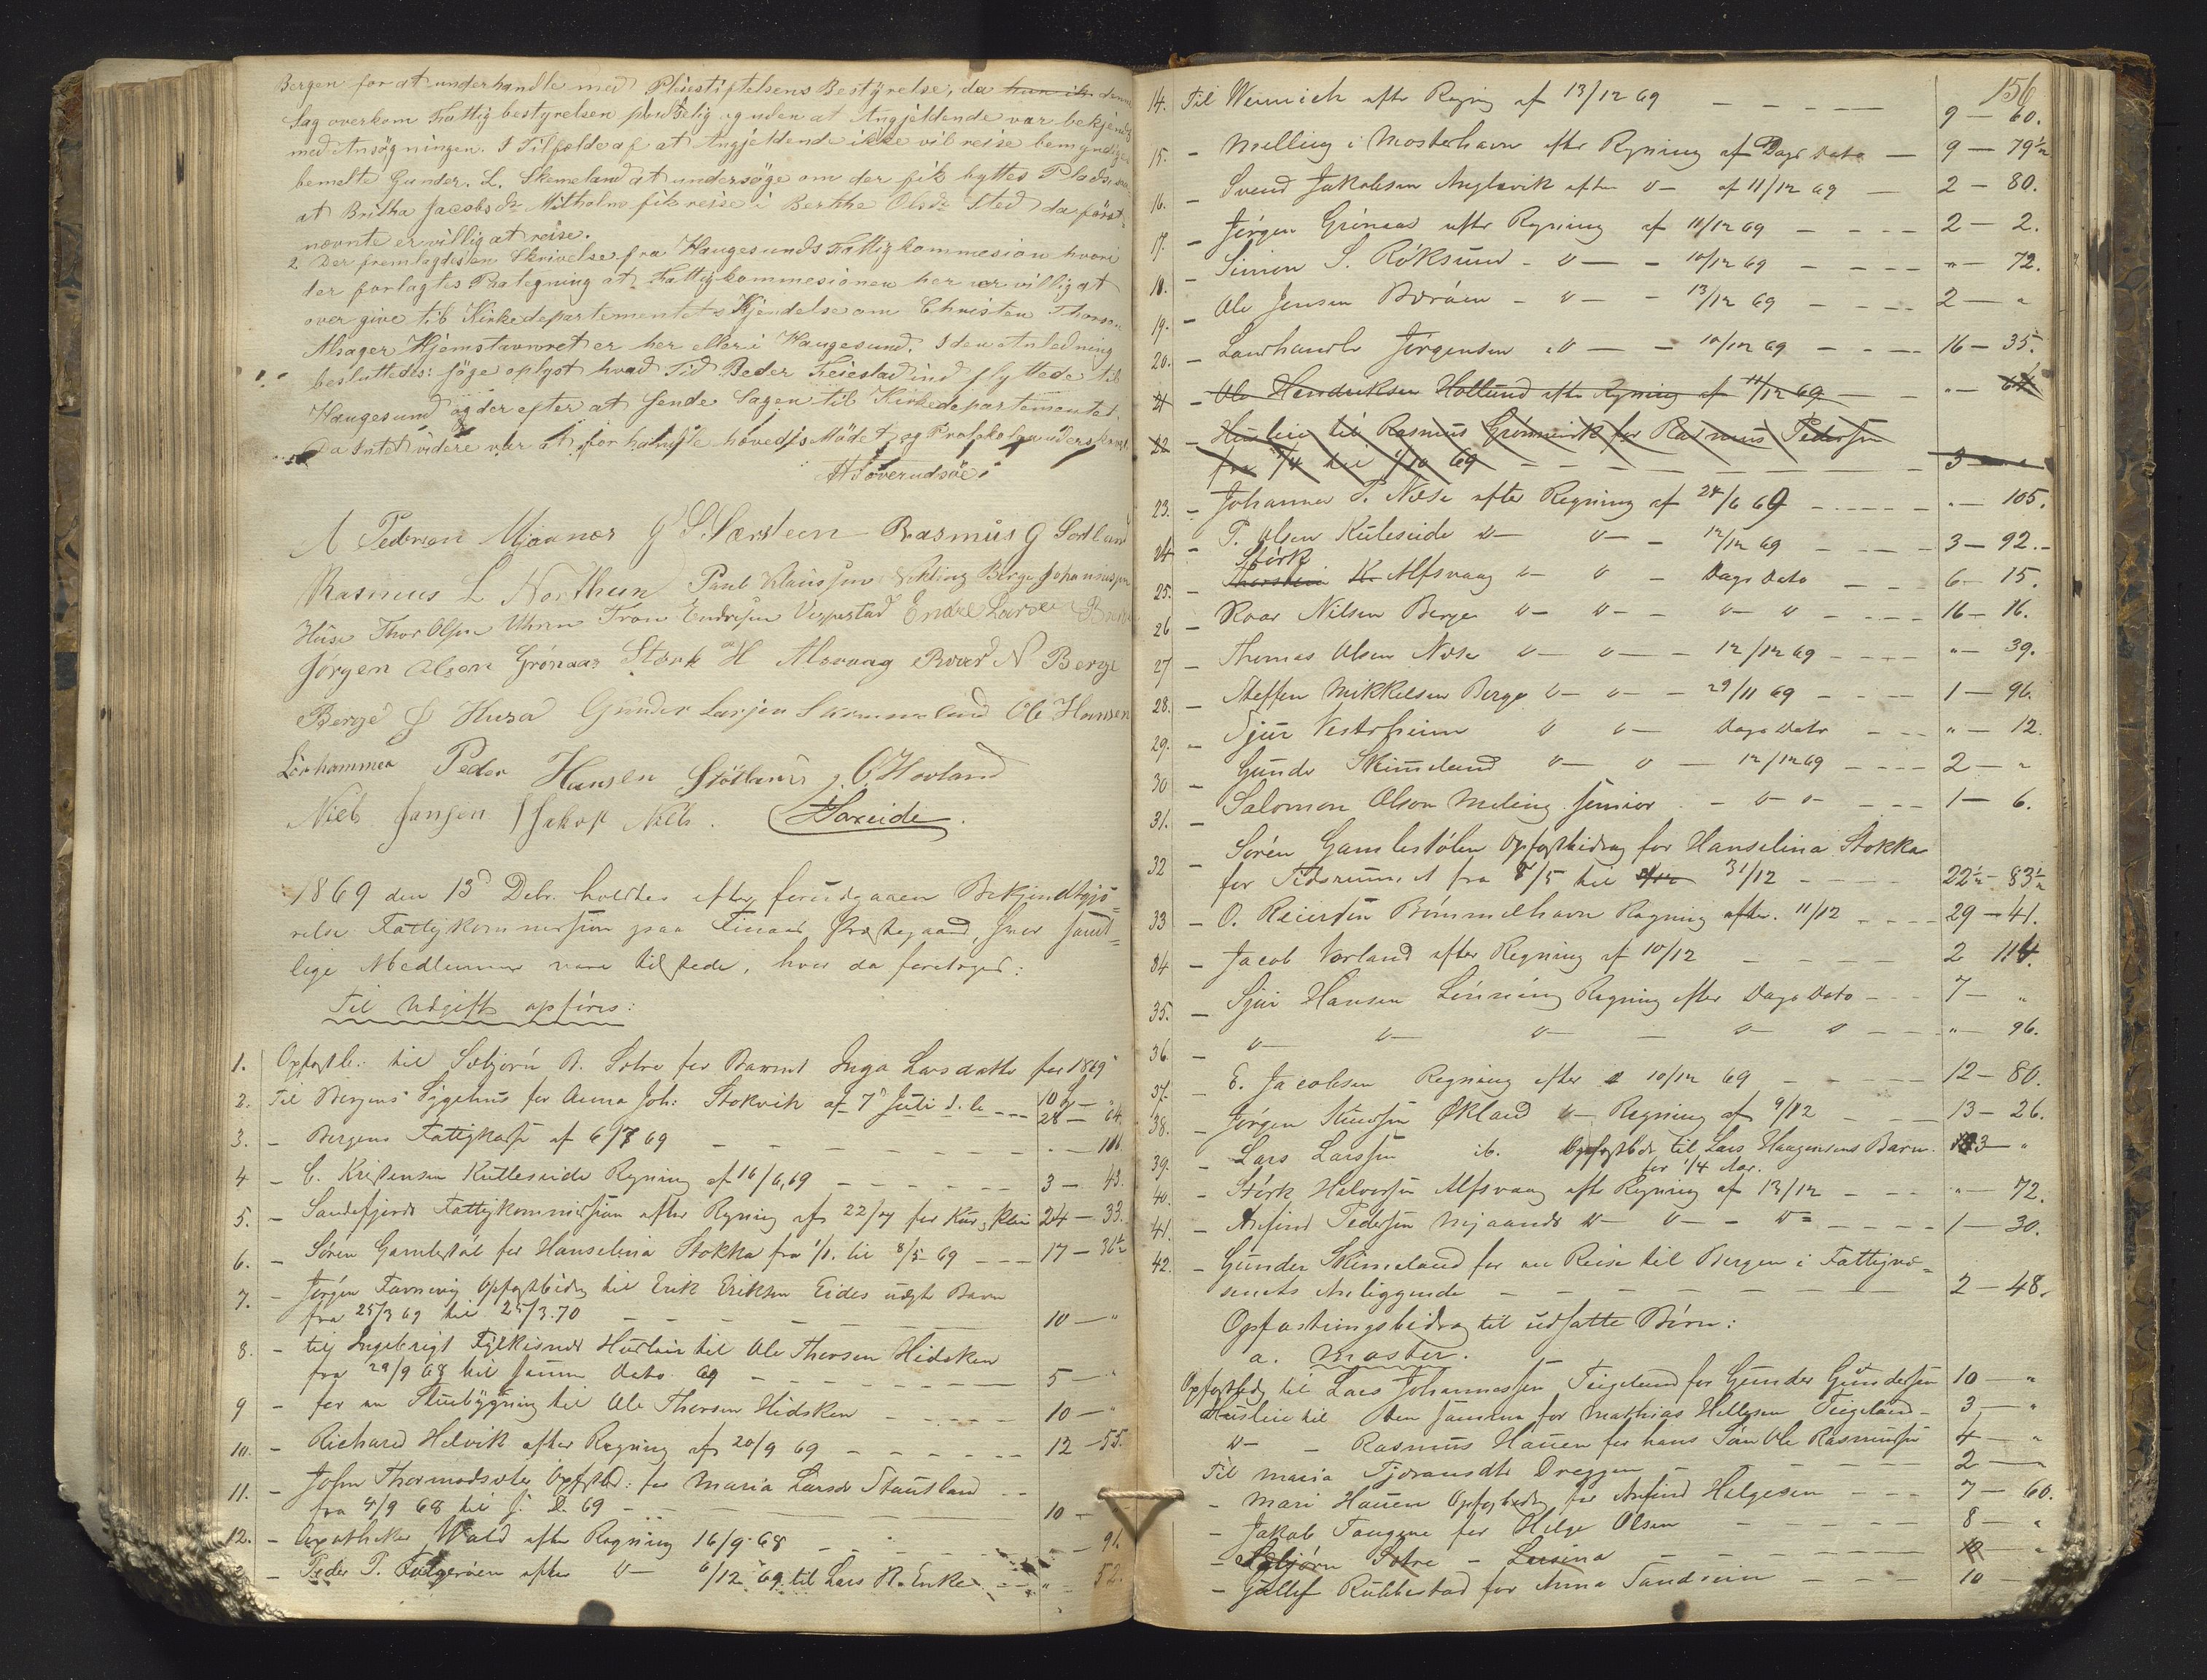 Bergen for at underhandle med Pleiestiftelsens Bestyrelse, da denne
Sag overkom Fattigbestyrelsen pludselig og uden at Angjeldende var bekjendt
med Ansøgningen. I Tilfælde af at Angjeldende ikke vil reise bemyndiges
bemelte Gunder L. Skemeland at undersøge om der fik byttes Plads,
at Britha Jacobsdr Mitholm fik reise i Berthe Olsdr Sted da først-
nævnte er villig at reise.
2 Der fremlagdes en Skrivelse fra Haugesunds Fattigkommesion hvori
der forlagtes Paategning at Fattigkommesionen her er villig at
over give til Kirkedepartementets Kjendelse om Christen Thorsen
Alsager Hjemstavnsret er her eller i Haugesund. I den Anledning
besluttedes: søge oplyst hvad Tid Peder Eeiestad ind flyttede til
Haugesund og der efter at sende Sagen til Kirkedepartementet.
Da Intet videre var at forhandle hævedes Mødet og Protokolen underskrevet
A Pederson Mjaanes G S Særsteen Rasmus G Sortland
Rasmus L Northun Paul Klaussen Vikling Berge Johannessen
Huse Thor Olsen Uhren Tron Endresen Vespestad Endre Larsen
Jørgen Olsen Grønaas Størk H Alsvaag Roar N Berge
Berge J Husa Gunder Larsen Skemmeland Ole Hansen
Lønhammer Peder Hansen Støtbens J. O. Hovland
Niels Jansen Jakop Niels. Hareide.
1869 den 13d Debr. holdtes efter forudgaaen Bekjendtgjø-
relse Fattigkommission paa Finaas Præstegaard, hvor samt-
lige Medlemmer vare tilstede, hvor da foretoges:
Til Udgift opføres:
1. Opfostb: til Sæbjørn B. Sotre for Barnet Inga Larsdatter for 1869 10 - "
2. Til Bergens Sygehus for Anna Joh: Stokvik af 7d Juli d. A. 28 - 64.
3. - Bergens Fattigkasse af 6/7 69 " - 100.
4 - C. Kristensen Kulleseide Regning af 16/6, 69 3 - 43.
5. - Sandefjords Fattigkommission efter Regning af 22/7 for Kur, Pleie 24 - 33.
6. - Søren Gamlestøl for Hanselina Stokka fra 1/1. til 8/5 69 17 - 36½
7. - Jørgen Tavning Opfostbidr. til Erik Eriksen Eides uægte Barn
fra 25/3 69 til 25/3.70 10 - "
8. - til Ingebrigt Fylkisnes Husleie til Ole Thorsen Hidsken
fra 29/9 68 til samme Dato 69 5 - "
9 - for en Stuebygning til Ole Thorsen Hidsken 10 - "
10. - Richard Helvik efter Regning af 20/9 69 12 - 55.
11. - John Thormodsæter Opfostbd: for Maria Larsdr Stautland
fra 4/9 68 til s. D. 69 10 -
12. - Apotheker Wald efter Regning 16/9 68 " - 91.
- Peder P. Folgerøen efter " 6/12 69 til Lars R. Enke " 52.
156
14. Til Weinich efter Regning af 13/12 69 9 - 60.
15. - Melling i Mosterhavn efter Regning af Dags Dato 9 - 79½
16. - Svend Jakobsen Anglevik efter " af 11/12 69 2 - 80.
17. - Jørgen Grønaas efter Regning af 11/12 69 2 - 2.
18. - Simon S. Røksund - " - 10/12 69 " - 72.
19. - Ole Jensen Børøen - " - 13/12 69 2 - "
20. - Landhandler Jørgensen " - 10/12 69 16 - 35.
21 - Ole Hendriksen Hollund efter Regning af 11/12 69 " - 64
22 - Husleie til Rasmus Grønnevik for Rasmus Pedersen
fra 1/4 til 1/10 69 3 - "
23. - Johannes T. Næse efter Regning af 24/6 69 " - 105.
24 - P. Olsen Kuleseide " " - 12/12 69 3 - 92.
25. - Størk
Thorstein K. Alfsvaag " " - Dags Dato 6 - 15.
26 - Roar Nilsen Berge " " - " " 16 - 16.
27 - Thomas Olsen Næse " " - 12/12 69 " - 39.
28. - Steffen Mikkelsen Berge " " - 29/11 69 1 - 96
29. - Sjur Vestrheim " " Dags Dato " - 12.
30 - Gunder Skimeland " " - 12/12 69 2 - "
31. - Salomon Olson Meling senior - " " 1 - 6.
32 - Søren Gamlestølen Opfostbidrag for Hanselina Stokka
for Tidsrummet fra 8/5 til 31/12 22½ - 83½
33 - O. Reiersen Bømmelhavn Regning efter 11/12 29 - 41.
34 - Jacob Vorland efter Regning af 10/12 2 114.
35. - Sjur Hansen Lønning Regning efter Dags Dato 7 - "
36 - " " " - " " " - 96.
37. E. Jacobsen Regning efter 10/12 69 12 - 80.
38. - Jørgen Knudsen Økland " Regning af 9/12 13 - 26.
39. - Lars Larssen ib. Opfostbdr til Lars Haagensens Barn 3 - "
for 1/4 Aar.
40. - Størk Halvorsen Alfsvaag efter Regning af 13/12 " - 72.
41. - Anfind Pedersen Mjaanes " " - " 1 - 30.
42. - Gunder Skimeland for en Reise til Bergen i Fattigvæ-
senets Anliggende 2 - 48.
Opfostringsbidrag til udsatte Børn:
a. Moster.
Opfostbdr til Lars Johannessen Teigeland for Gunder Gundersen 10 - "
Husleie til den samme for Mathias Helgesen Teigeland 3 - "
" - Rasmus Hauen for hans Søn Ole Rasmussen 4 - "
Til Maria Tjøransdtr Dreggen 2 - "
- Mari Hauen Opfostbidrag for Anfind Helgesen 7 - 60.
- Jakob Tangene for Helge Olsen 8 - "
- Sæbjørn Sotre - Lusina 10 "
- Gullef Rubbestad for Anna Sandsun 10 -